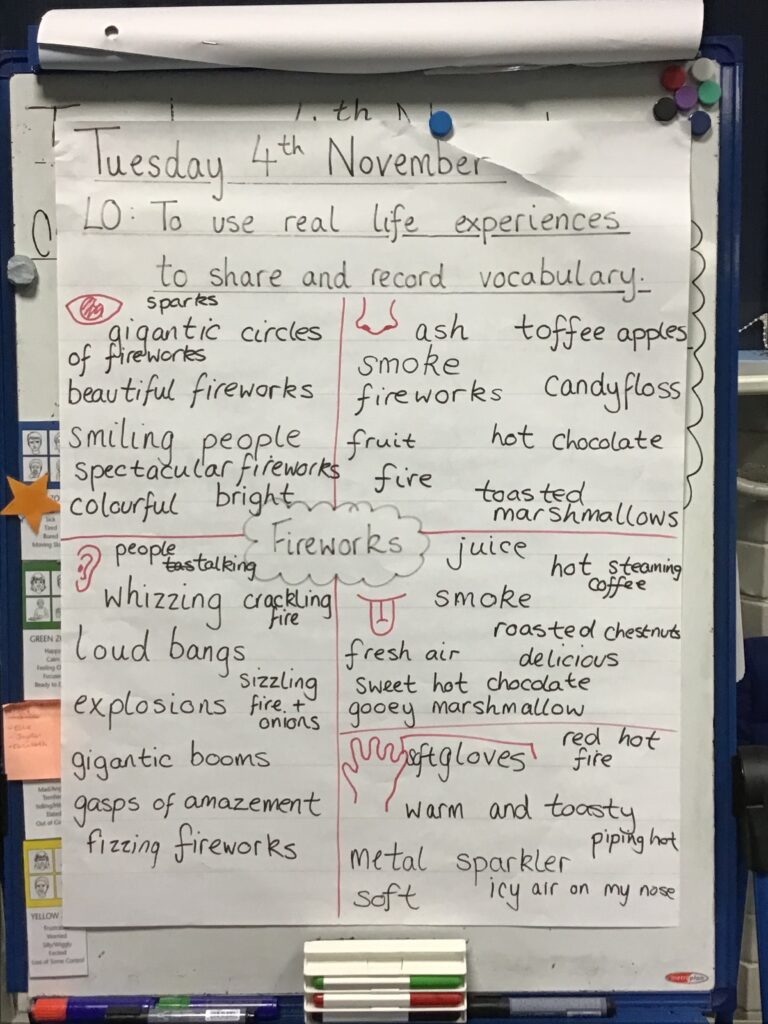 Tuesday 4th November
LO: To use real life experiences
to share and record vocabulary.
sparks
gigantic circles
of fireworks
beautiful fireworks
smiling people
spectacular fireworks
colourful bright
ash toffee apples
smoke
fireworks candyfloss
fruit hot chocolate
fire
toasted
marshmallows
Fireworks
people
talking
whizzing crackling
fire
loud bangs
sizzling
explosions fire +
onions
gigantic booms
gasps of amazement
fizzing fireworks
juice
hot steaming
coffee
smoke
roasted chestnuts
fresh air delicious
sweet hot chocolate
gooey marshmallow
soft gloves red hot
fire
warm and toasty
piping hot
metal sparkler
soft icy air on my nose
GREEN ZO
YELLOW
Out of Co
Frustra
Worried
Silly/Wiggly
Excited
Loss of Some Control